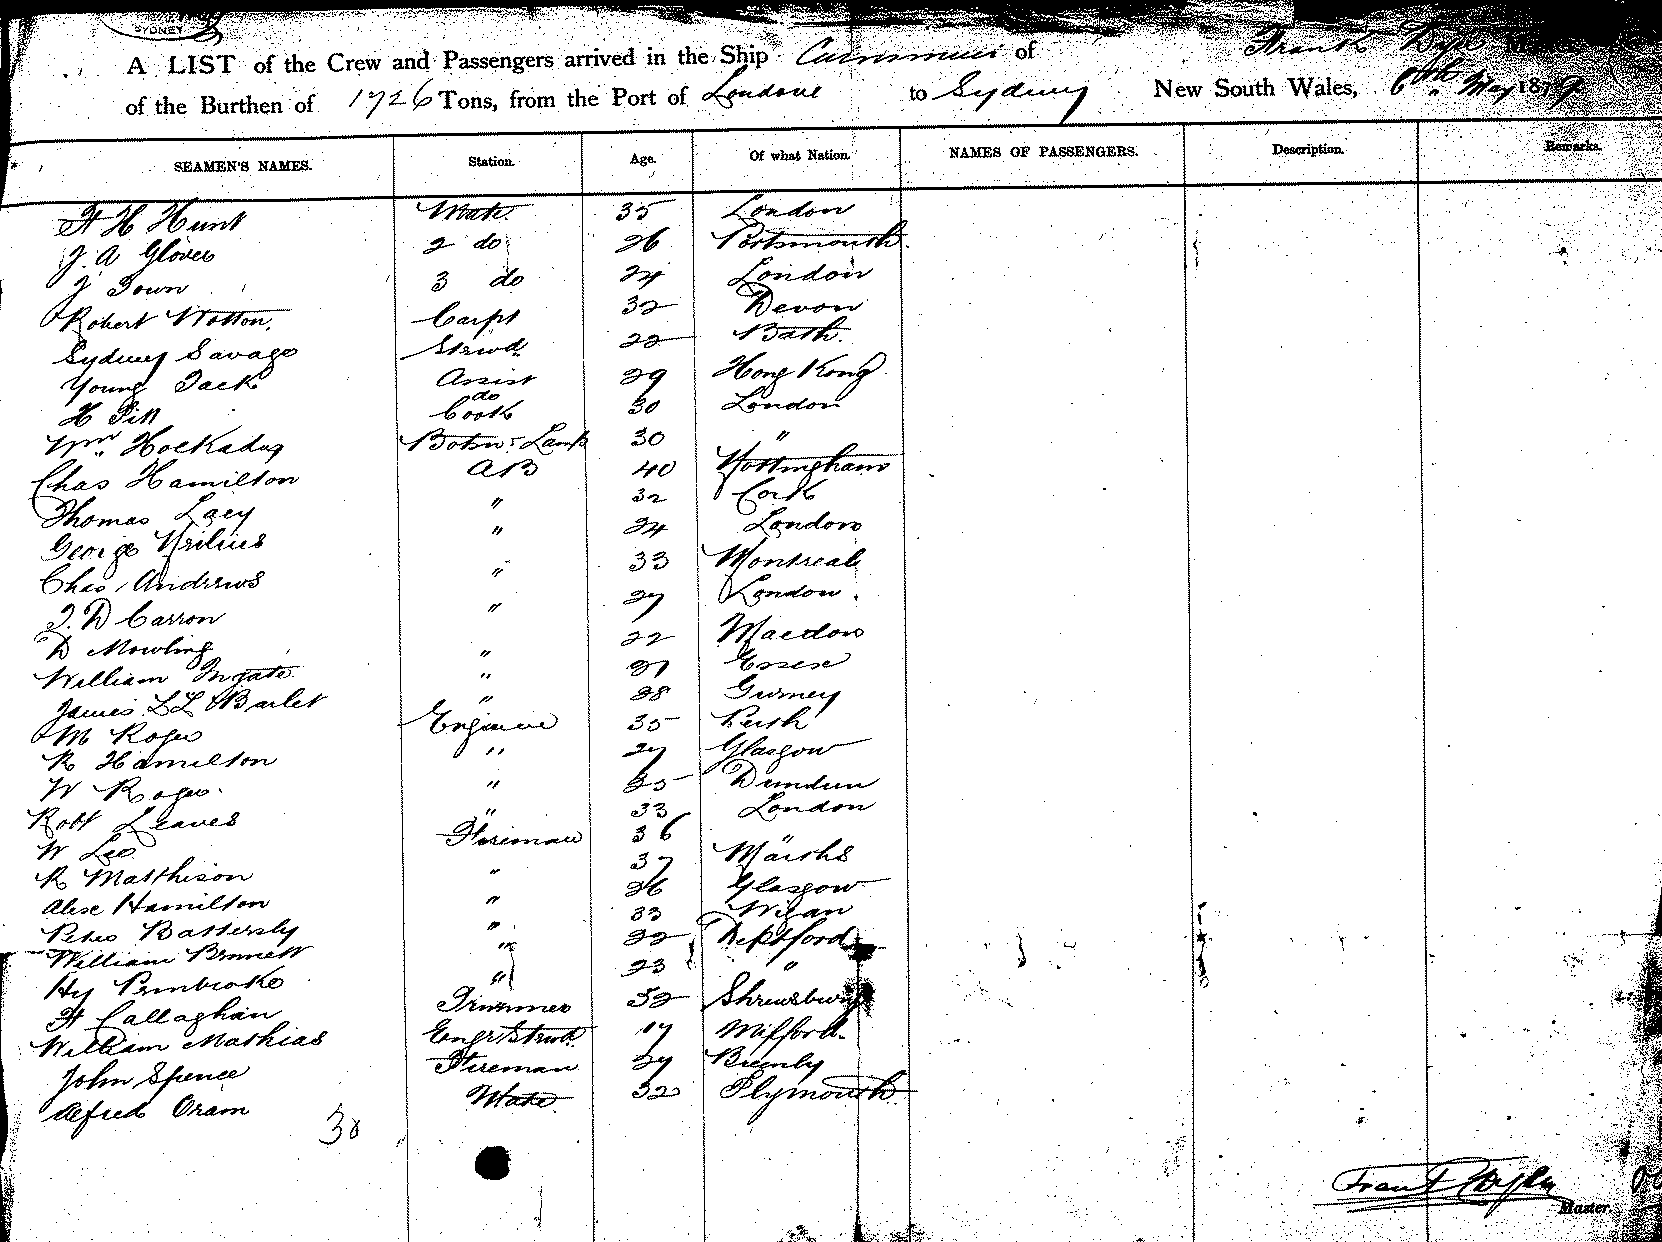 SYDNEY
A LIST of the Crew and Passengers arrived in the Ship of Frank
of the Burthen of 1726 Tons, from the Port of London to Sydney New South Wales, 6th May 1879
SEAMEN'S NAMES. Station. Age. Of what Nation. NAMES OF PASSENGERS. Description. Remarks.
H Hunt Mate. 35 London
J. A Glover 2 do 26 Portsmouth
J Town 3 do 24 London
Robert Wotton. Carpt 32 Devon
Sydney Savage Strwd 22 Bath.
Young Jack Assist do 29 Hong Kong
H Pitt Cook 30 London
Wm Hockaday Botsn & Lamp 30 "
Chas Hamilton AB 40 Nottingham
Thomas Lacy " 32 Cork
George " 24 London
Chas Andrews " 33 Montreal
J. D Carron " 27 London.
D Mowling " 22 Maedon
William Ingate " 21 Essex
James Barlet " 28 Gurney
M Roger Engineer 35 Perth
R Hamilton " 27 Glasgow
W Roger " 25 Dundum
Robt Leaves " 33 London
W Lee Fireman 36 "
R Matthison " 37 Marshs
Alexe Hamilton " 26 Glasgow
Peter Battersby " 33 Wigan
William Brunett " 22 Deptford
Hy Pembroke " 23 "
H Callaghan Trimmer 32 Shrewsbury
William Mathias Engr Strwd. 17 Milford.
John Spence Fireman 27
Alfred Oram Mate. 32 Plymouth
30
Frank
Master.